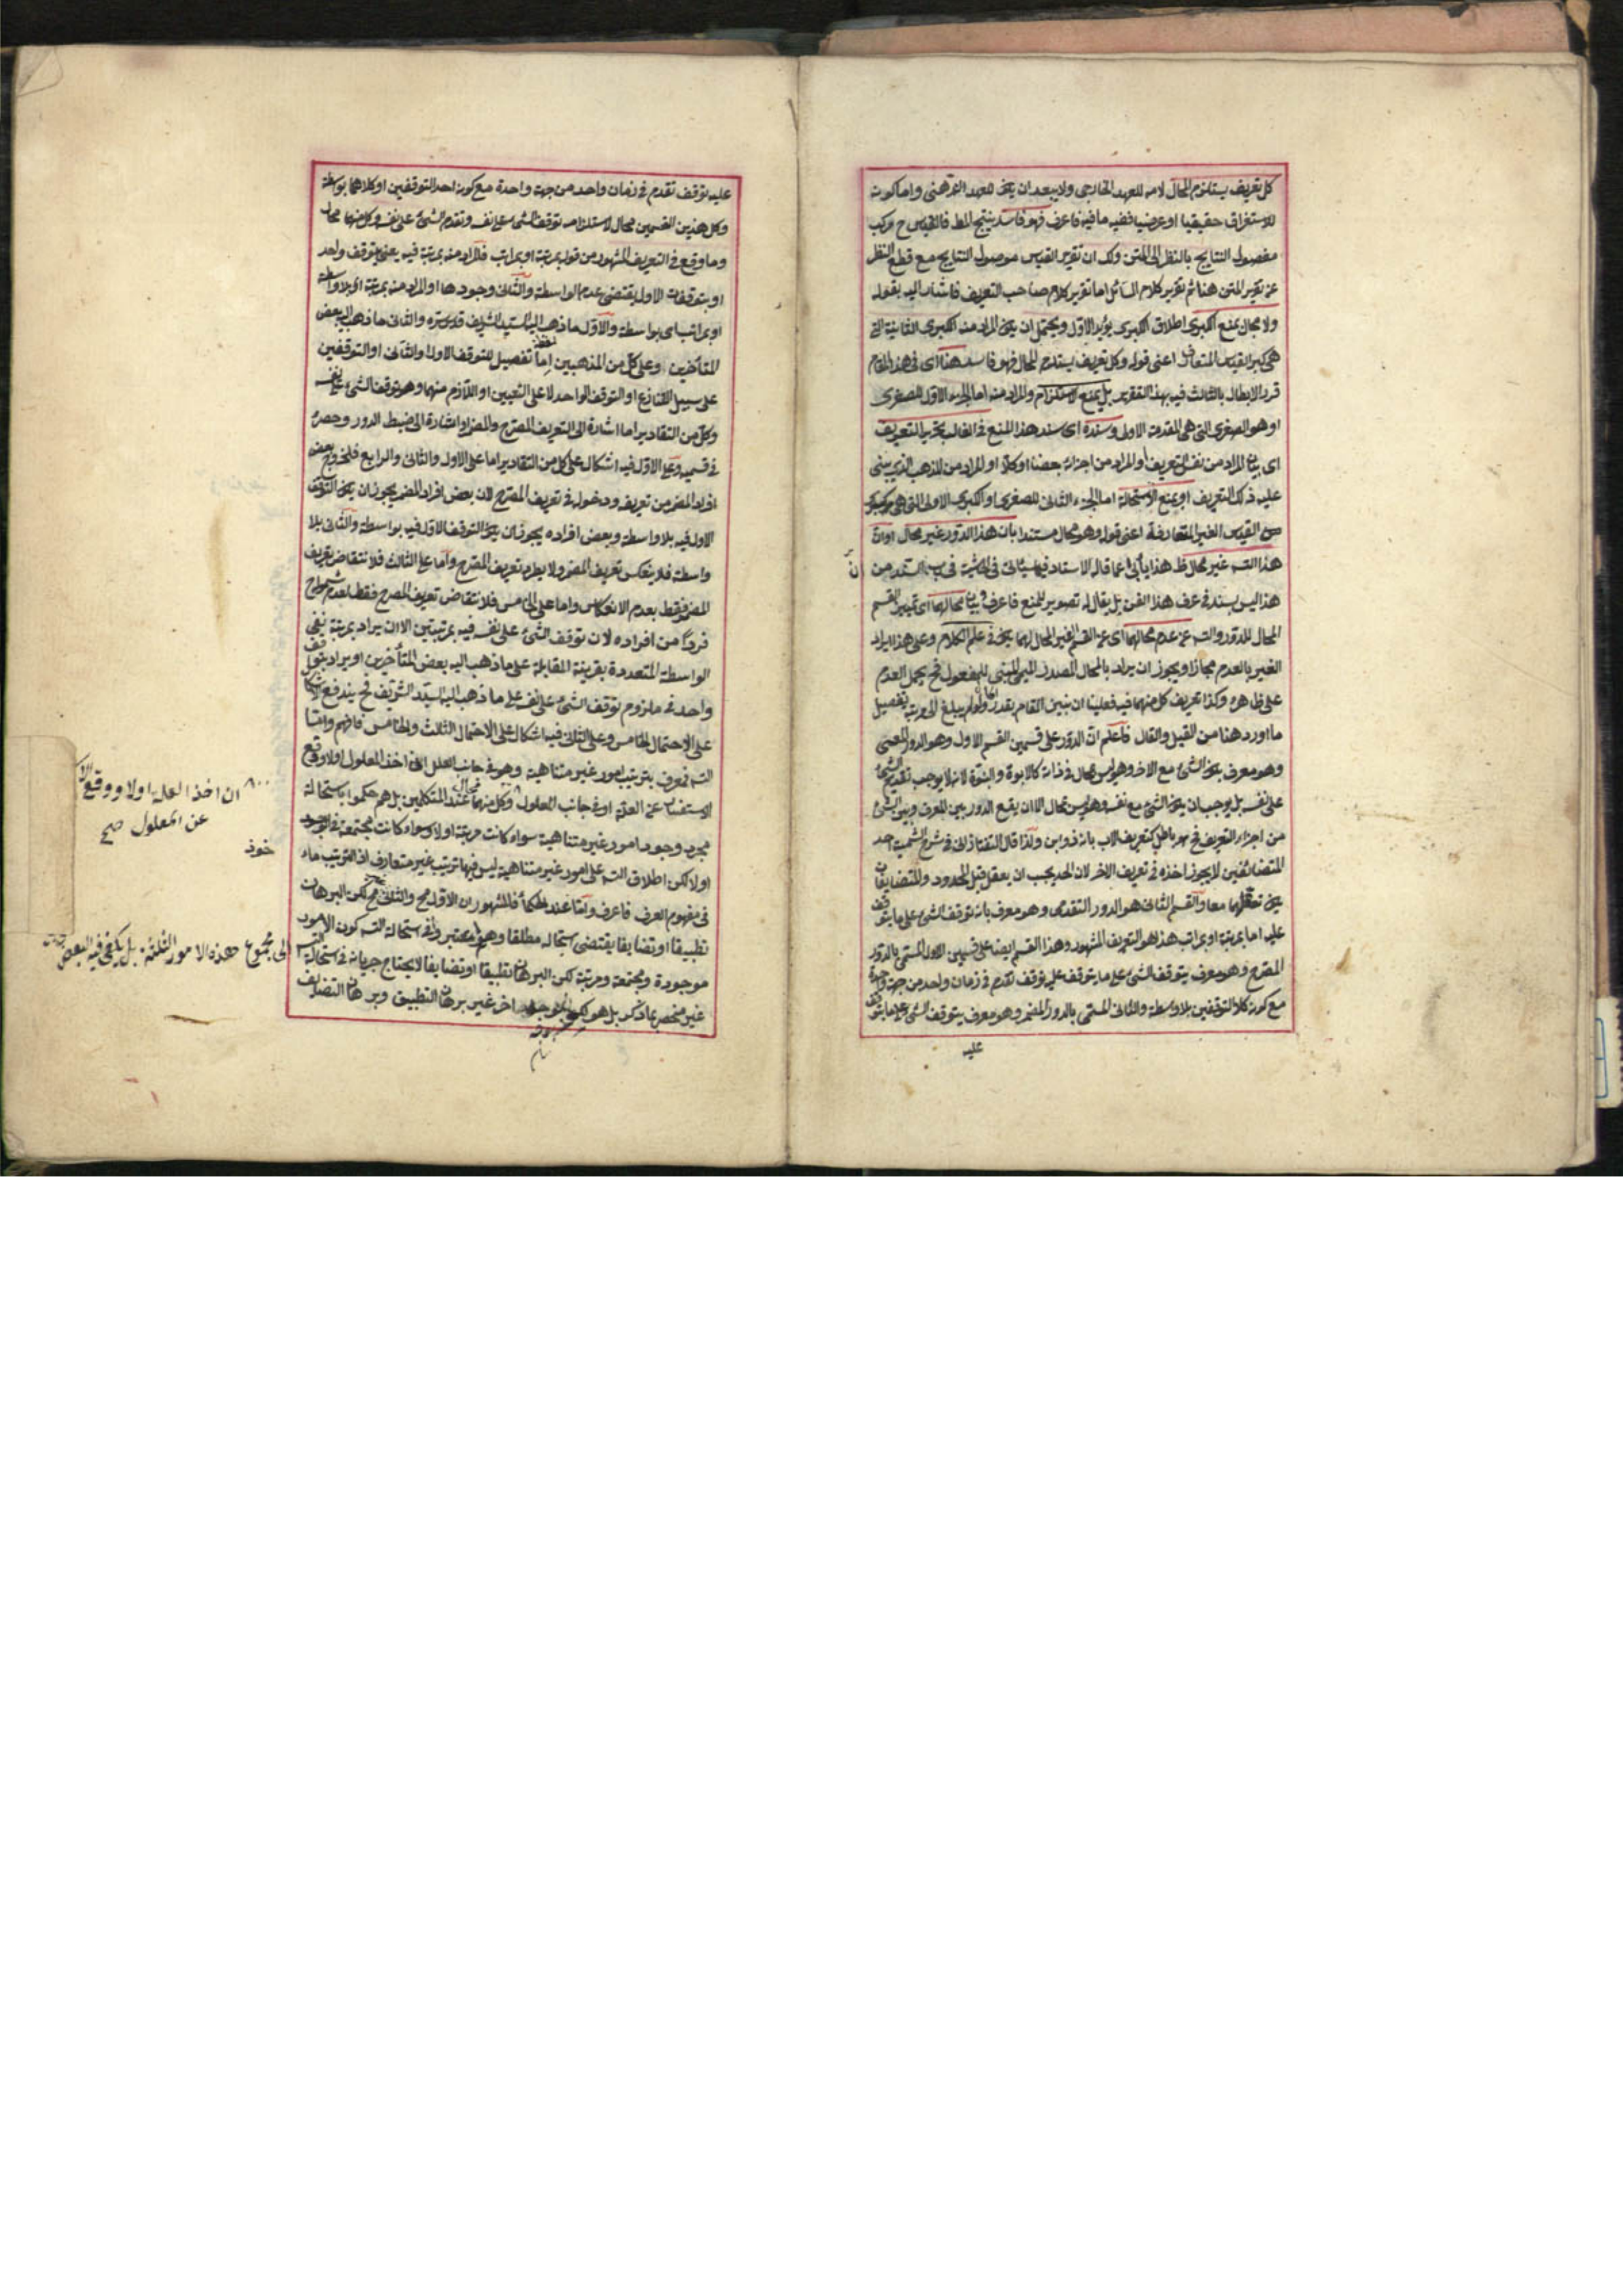 كل تعريف يستلزم المحال لامه للعهد الخارجى ولا يبعد ان يكون للعهد الذهنى واما كونه
للاستغراق حقيقيا او عرفيا ففيه ما فيه فاعرف فهو فاسد ينتج المط فالقياس ح مركب
مفصول النتايج بالنظر الى المتن ولك ان تقرير القياس موصول النتايج مع قطع النظر
عن تقرير المتن هنا ثم تقرير كلام السائل اما تقرير كلام صاحب التعريف فاشار اليه بقوله
ولا مجال بمنع الكبرى اطلاق الكبرى يؤيد الاول ويحتمل ان يكون المراد منه الكبرى الثانية التى
هى كبرى القياس المتعارف اعنى قوله وكل تعريف يستلزم المحال فهو فاسد هنا اى فى هذا المقام
قرر الابطال بالثالث فيه بهذا التقرير بل بمنع الاستلزام والمراد منه اما الجزء الاول للصغرى
او هو الصغرى التى هى المقدمة الاولى وسنده اى سند هذا المنع فى الغالب تحرير التعريف
اى بيان المراد من نفس التعريف او المراد من اجزائه بعضا او كلا او المراد من المذهب الذى يبنى
عليه ذلك التعريف او بمنع الاستحالة اما الجزء الثانى للصغرى او الكبرى الاولى التى هى كبرى
القياس الغير المتعارفة اعنى قوله وهو محال مستندا بان هذا الدور غير محال او ان
هذا التسـ غير محال ظ هذا يأبى عما قاله الاستاد فيما سيأتى فى الحاشية فى السند من ان
هذا ليس بسند فى عرف هذا الفن بل يقال له تصوير للمنع فاعرف وبيان محالهما اى تمييز القسم
المحال للدور والتسـ عن عدم محالهما اى عن القسم الغير المحال لهما يكون فى علم الكلام وعلى هذا يراد
الغير بالعدم مجازا ويجوز ان يراد بالمحال المصدر الميمى المبنى للمفعول فح يحمل العدم
على ظاهره وكذا تعريف كل منهما فيه فعلينا ان نبين المقام بقدر ولو لم يبلغ الى مرتبة تفصيل
ما اورد هنا من القيل والقال فاعلم ان الدور على قسمين القسم الاول وهو الدور المعى
وهو معرف بكون الشئ مع الاخر وهو ليس بمحال فى ذاته كالابوة والبنوة لانه لا يوجب تقدم الشئ
على نفسه بل يوجب ان يكون الشئ مع نفسه وهو ليس بمحال الا ان يقع الدور بين المعرف وبين الشئ
من اجزاء التعريف فح هو باطل كتعريف الاب بانه ذو ابن ولذا قال التفتازانى فى شرح الشمسية احد
المتضائفين لا يجوز اخذه فى تعريف الاخر لان الحد يجب ان يعقل قبل المحدود والمتضايفان
يكون تعقلهما معا والقسم الثانى هو الدور التقدمى وهو معرف بانه توقف الشئ على ما يتوقف
عليه اما بمرتبة او بمراتب هذا هو التعريف المشهور وهذا القسم ايضا على قسمين الاول المسمى بالدور
المصرح وهو معرف بتوقف الشئ على ما يتوقف عليه توقف تقدم فى زمان واحد من جهة واحدة
مع كون كلا التوقفين بلا واسطة والثانى المسمى بالدور المضمر وهو معرف بتوقف الشئ على ما يتوقف
عليه
عليه توقف تقدم فى زمان واحد من جهة واحدة مع كون احد التوقفين او كلاهما بواسطة
وكل هذين القسمين محال لاستلزامه توقف الشئ على نفسه وتقدم الشئ على نفسه وكل منهما محال
وما وقع فى التعريف المشهور من قوله بمرتبة او بمراتب فالمراد منه بمرتبة فيه يعنى بتوقف واحد
او بتوقفات الاول يقتضى عدم الواسطة والثانى وجودها او المراد منه بمرتبة اى بلا واسطة
او بمراتب اى بواسطة والاول ما ذهب اليه السيد الشريف قدس سره والثانى ما ذهب اليه بعض
المتأخرين وعلى كل من المذهبين اما تفصيل للتوقف الاول او الثانى او التوقفين
على سبيل التنازع او التوقف الواحد لا على التعيين او اللازم منهما وهو توقف الشئ على نفسه
وكل من التقادير اما اشارة الى التعريف المصرح والمضمر او اشارة الى ضبط الدور وحصره
فى قسميه وعلى الاول فيه اشكال على كل من التقادير اما على الاول والثانى والرابع فلخروج بعض
افراد المضمر من تعريفه ودخوله فى تعريف المصرح لان بعض افراد المضمر يجوز ان يكون التوقف
الاول فيه بلا واسطة وبعض افراده يجوز ان يكون التوقف الاول فيه بواسطة والثانى بلا
واسطة فلا ينعكس تعريف المضمر ولا يطرد تعريف المصرح واما على الثالث فلانتقاض تعريف
المضمر فقط بعدم الانعكاس واما على الخامس فلانتقاض تعريف المصرح فقط لعدم شموله
فردا من افراده لان توقف الشئ على نفسه فيه بمرتبتين الا ان يراد بمرتبة نفى
الواسطة المتعددة بقرينة المقابلة على ما ذهب اليه بعض المتأخرين او يراد بتوقف
واحد فى ملزوم توقف الشئ على نفسه على ما ذهب اليه السيد الشريف فح يندفع الاشكال
على الاحتمال الخامس وعلى الثانى فيه اشكال على الاحتمال الثالث والخامس فافهم واما
التسـ فمعرف بترتب امور غير متناهية وهو فى جانب العلل ان اخذ المعلول اولا وقع
الاستفسار عن العلة او فى جانب المعلول وكل منهما محال عند المتكلمين بل هم حكموا باستحالة
مجرد وجود امور غير متناهية سواء كانت مرتبة اولا وسواء كانت مجتمعة فى الوجود
اولا لكن اطلاق التسـ على امور غير متناهية ليس فيها ترتيب غير متعارف اذ الترتيب ماء خوذ
فى مفهوم العرف فاعرف واما عند الحكماء فالمشهور ان الاول مح والثانى غير مح لكن البرهان
تطبيقا او تضايفا يقتضى استحاله مطلقا وهم معتبر وا فى استحالة التسـ كون الامور
موجودة ومجتمعة ومرتبة لكن البرهان تطبيقا او تضايفا لا يحتاج جريانه فى استحالة التسـ
غير منحصر بما ذكر بل هو اخر غير برهان التطبيق وبرهان التضايف
ان اخذ العلة اولا ووقع الا
عن المعلول صح
الى مجموع هذه الامور الثلثة بل يكفى فيه البعض